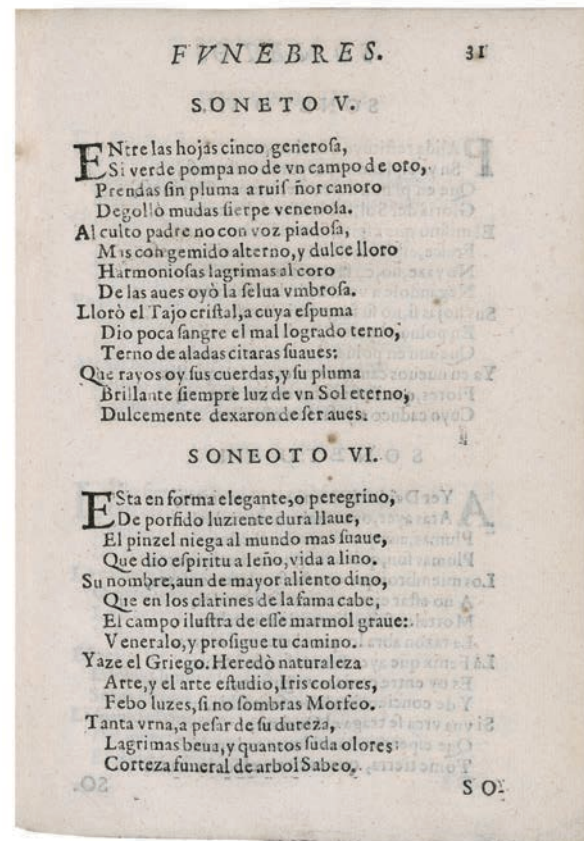 FVNEBRES. 31
SONETO V.
ENtre las hojas cinco generoſa,
Si verde pompa no de vn campo de oro,
Prendas ſin pluma a ruiſ ñor canoro
Degollò mudas ſierpe venenoſa.
Al culto padre no con voz piadoſa,
Mas con gemido alterno, y dulce lloro
Harmonioſas lagrimas al coro
De las aues oyò la ſelua vmbroſa.
Llorò el Tajo criſtal, a cuya eſpuma
Dio poca ſangre el mal logrado terno,
Terno de aladas citaras ſuaues:
Que rayos oy ſus cuerdas, y ſu pluma
Brillante ſiempre luz de vn Sol eterno,
Dulcemente dexaron de ſer aues.
SONEOTO VI.
ESta en forma elegante, o peregrino,
De porfido luziente dura llaue,
El pinzel niega al mundo mas ſuaue,
Que dio eſpiritu a leño, vida a lino.
Su nombre, aun de mayor aliento dino,
Que en los clarines de la fama cabe,
El campo iluſtra de eſſe marmol graue:
Veneralo, y proſigue tu camino.
Yaze el Griego. Heredò naturaleza
Arte, y el arte eſtudio, Iris colores,
Febo luzes, ſi no ſombras Morfeo.
Tanta vrna, a peſar de ſu dureza,
Lagrimas beua, y quantos ſuda olores
Corteza funeral de arbol Sabeo.
SO-